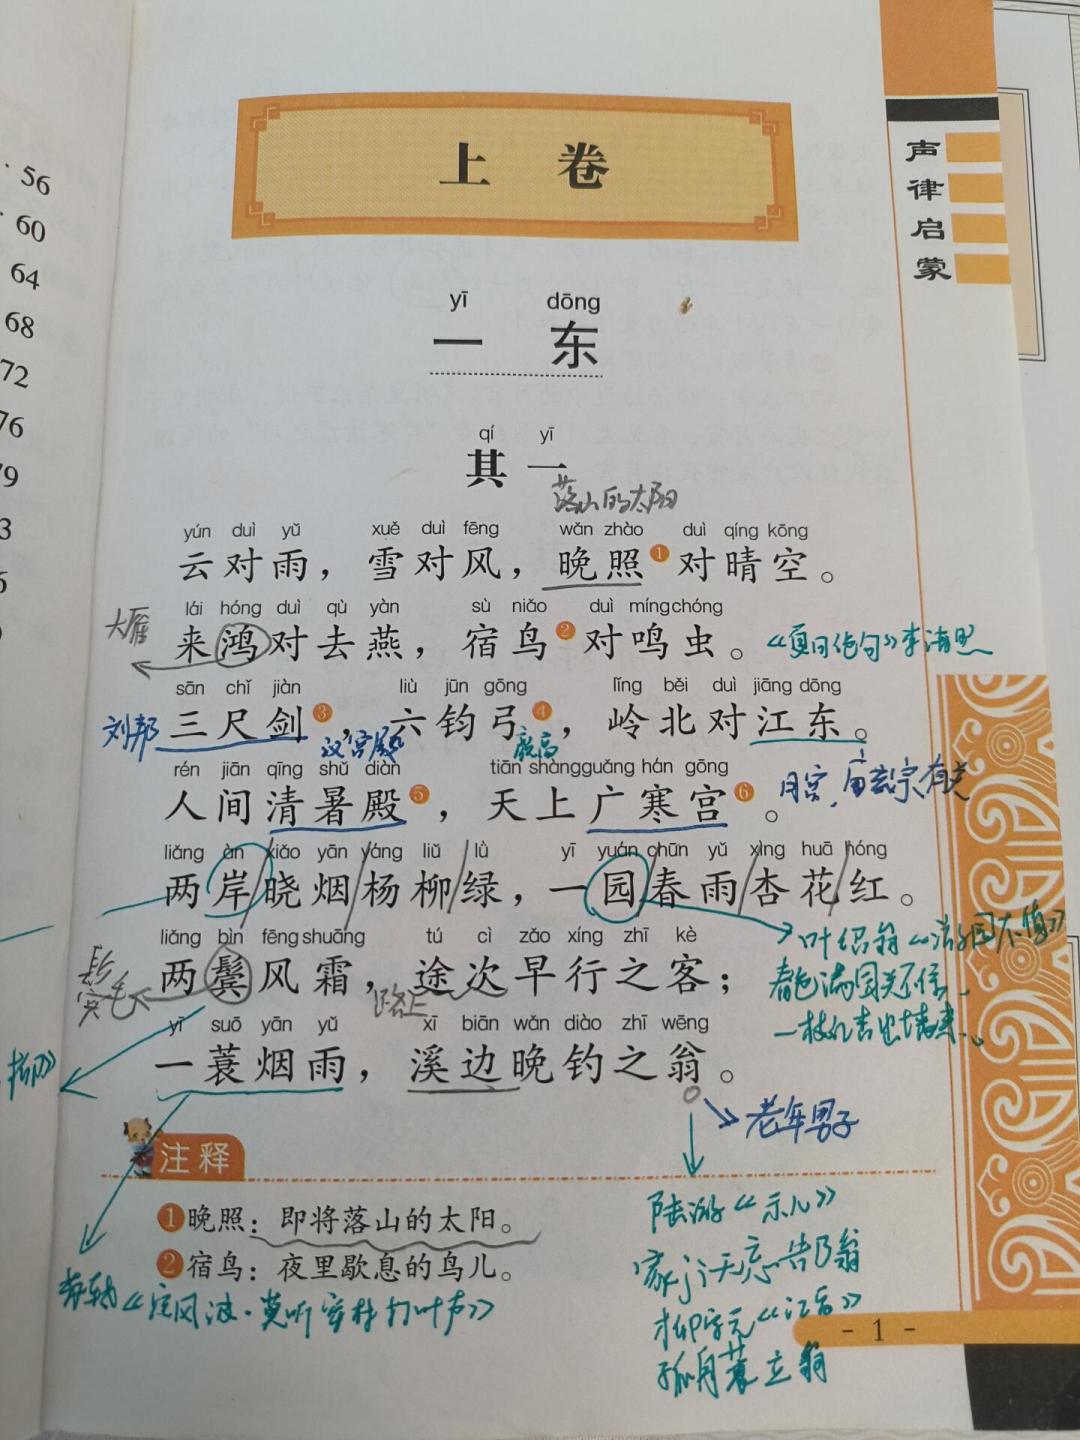 上 卷
声律启蒙
56
60
64
68
72
76
79
yī dōng
一 东
qí yī
其 一
落山的太阳
yún duì yǔ xuě duì fēng wǎn zhào duì qíng kōng
云对雨，雪对风，晚照①对晴空。
大雁
lái hóng duì qù yàn sù niǎo duì míng chóng
来鸿对去燕，宿鸟②对鸣虫。
《夏日绝句》李清照
sān chǐ jiàn liù jūn gōng lǐng běi duì jiāng dōng
刘邦
三尺剑③，六钧弓④，岭北对江东。
汉宫殿
rén jiān qīng shǔ diàn tiān shàng guǎng hán gōng
人间清暑殿⑤，天上广寒宫⑥。
月宫，唐玄宗有关
liǎng àn xiǎo yān yáng liǔ lǜ yì yuán chūn yǔ xìng huā hóng
两岸晓烟杨柳绿，一园春雨杏花红。
叶绍翁《游园不值》
春色满园关不住，
一枝红杏出墙来。
liǎng bìn fēng shuāng tú cì zǎo xíng zhī kè
两鬓风霜，途次早行之客；
路上
yī suō yān yǔ xī biān wǎn diào zhī wēng
一蓑烟雨，溪边晚钓之翁。
老年男子
注释
①晚照：即将落山的太阳。
②宿鸟：夜里歇息的鸟儿。
《定风波·莫听穿林打叶声》
陆游《示儿》
家祭无忘告乃翁
柳宗元《江雪》
孤舟蓑立翁
- 1 -